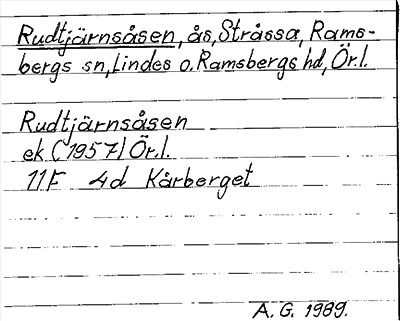 Rudtjärnsåsen, ås, Stråssa, Rams-
bergs sn, Lindes o. Ramsbergs hd, Ör.l.
Rudtjärnsåsen
ek (1957) Ör.l.
11F 4d Kårberget
A. G. 1989.